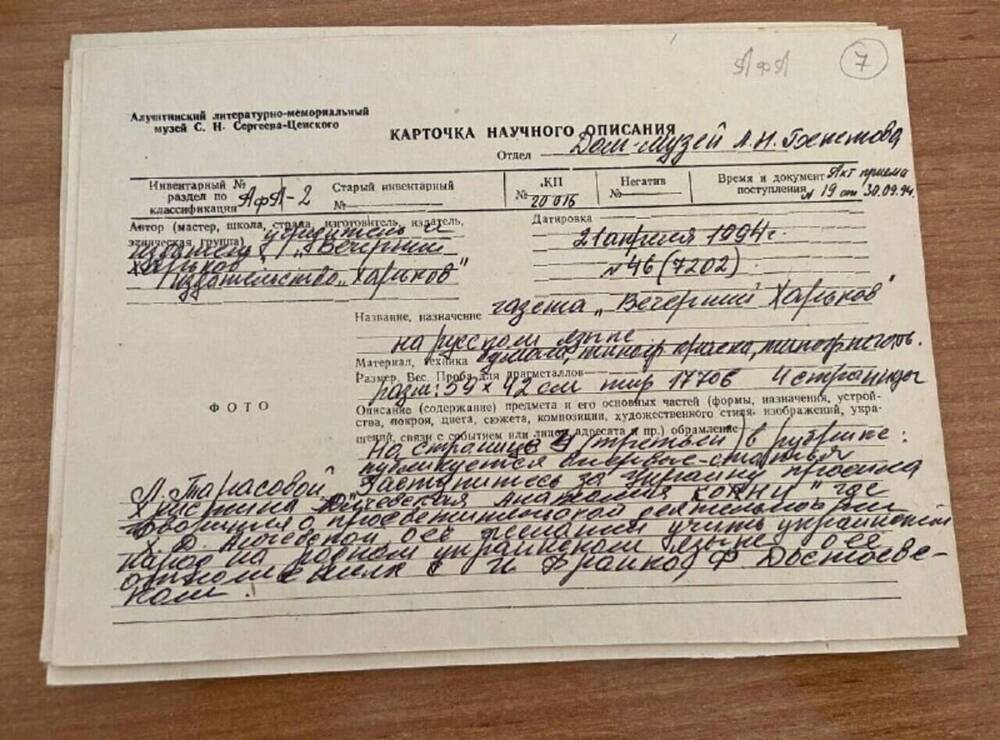 АфА 7
Алуштинский литературно-мемориальный
музей С. Н. Сергеева-Ценского
КАРТОЧКА НАУЧНОГО ОПИСАНИЯ
Отдел Дом-музей А.Н. Бекетова
Инвентарный № раздел по классификации АфА-2
Старый инвентарный №
КП № 20016
Негатив №
Время и документ поступления Акт приема № 19 от 30.09.94.
Автор (мастер, школа, страна, изготовитель, издатель,
этническая группа) учредитель и
издатель „Вечерний
Харьков"
издательство „Харьков"
Датировка
21 апреля 1994 г.
№ 46 (7202)
Название, назначение газета „Вечерний Харьков"
на русском языке
Материал, техника бумага, типогр краска, типофигогр.
Размер. Вес. Проба для драгметаллов
разм: 59 х 42 см тир 17706 4 страницы
ФОТО
Описание (содержание) предмета и его основных частей (формы, назначения, устрой-
ства, покроя, цвета, сюжета, композиции, художественного стиля, изображений, укра-
шений, связи с событием или лицом, адресата и пр.) обрамление
На странице 3 (третьей) в рубрике:
публикуется впервые - статья
Л. Тарасовой „Заступитесь за Украину просила
Христина Алчевская Анатолия Кони" где
говорится о просветительской деятельности
Х. Д. Алчевской о ее желании учить украинский
народ на родном украинском языке о ее
Франко, Ф. Достоевс-
ком.